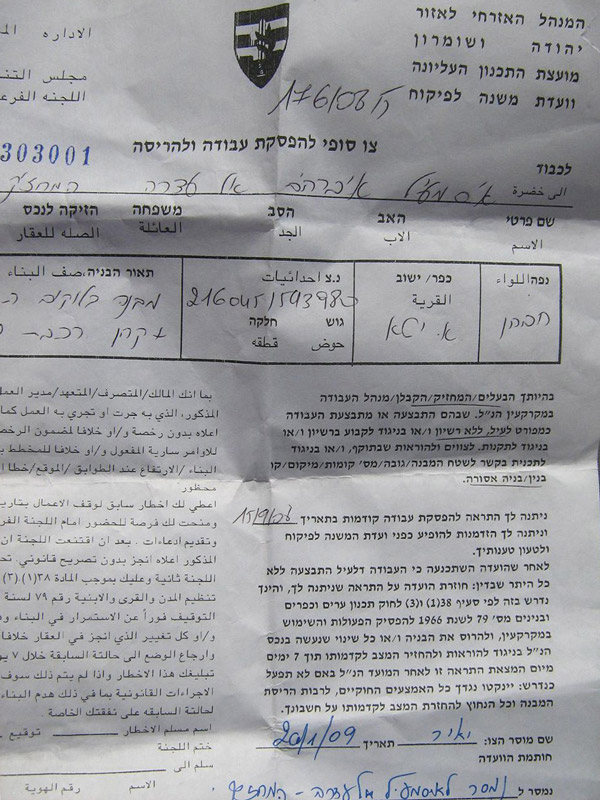 המנהל האזרחי לאזור
יהודה ושומרון
מועצת התכנון העליונה
וועדת משנה לפיקוח
الاداره
مجلس
اللجنه
צו סופי להפסקת עבודה ולהריסה
303001
לכבוד
الى حضرة
שם פרטי האב הסב משפחה הזיקה לנכס
الاسم الاب الجد العائلة الصله للعقار
נפה اللواء כפר/ ישוב القرية נ.צ احداثيات תאור הבניה، صف البناء
חברון א. יטא 216045/593980
גוש חלקה
حوض قطعه
בהיותך הבעלים/המחזיק/הקבלן/מנהל העבודה
במקרקעין הנ"ל. שבהם התבצעה או מתבצעת העבודה
כמפורט לעיל, ללא רשיון ו/או בניגוד לקבוע ברשיון ו/או
בניגוד לתקנות. לצווים ולהוראות שבתוקף, ו/או בניגוד
לתכנית בקשר לשטח המבנה/גובה/מס' קומות/מיקום/קו
בנין/בניה אסורה.
ניתנה לך התראה להפסקת עבודה קודמות בתאריך
וניתנה לך הזדמנות להופיע בפני ועדת המשנה לפיקוח
ולטעון טענותיך.
לאחר שהועדה השתכנעה כי העבודה דלעיל התבצעה ללא
כל היתר שבדין: חוזרת הועדה על התראה שניתנה לך, והינך
נדרש בזה לפי סעיף 38(1) (3) לחוק תכנון ערים וכפרים
ובנינים מס' 79 לשנת 1966 להפסיק הפעולות והשימוש
במקרקעין, ולהרוס את הבניה ו/או כל שינוי שנעשה בנכס
הנ"ל בניגוד להוראות ולהחזיר המצב לקדמותו תוך 7 ימים
מיום המצאת התראה זו לאחר המועד הנ"ל באם לא תפעל
כנדרש: יינקטו נגדך כל האמצעים החוקיים, לרבות הריסת
המבנה וכל הנחוץ להחזרת המצב לקדמותו על חשבונך.
שם מוסר הצו: יאיר תאריך 20/1/09
חותמת הוועדה
נמסר ל
بما انك المالك/المتصرف/المتعهد/مدير العمل
المذكور، الذي به جرت او تجري به العمل
اعلاه بدون رخصة و/او خلافا لمضمون
للاوامر سارية المفعول و/او خلافا للمخطط
البناء /الارتفاع عند الطوابق /الموقع/
محظور
اعطي لك اخطار سابق لوقف الاعمال
ومنحت لك فرصة للحضور امام اللجنة
وتقديم ادعاءات. بعد ان اقتنعت اللجنة
المذكور اعلاه انجز بدون تصريح قانوني.
اللجنة ثانية وعليك بموجب المادة ٣٨(١) (٣)
تنظيم المدن والقرى والابنية رقم ٧٩ لسنة
التوقيف فوراً عن الاستمرار في البناء
و/او كل تغيير الذي انجز في العقار خلافا
وارجاع الوضع الى حالتة السابقة خلال ٧
تبليغك هذا الاخطار واذا لم يتم ذلك سوف
الاجراءات القانونية بما في ذلك هدم البناء
لحالتة السابقه على نفقتك الخاصة.
اسم مسلم الاخطار توقيع
ختم اللجنة
سلم الى
الاسم رقم الهوية